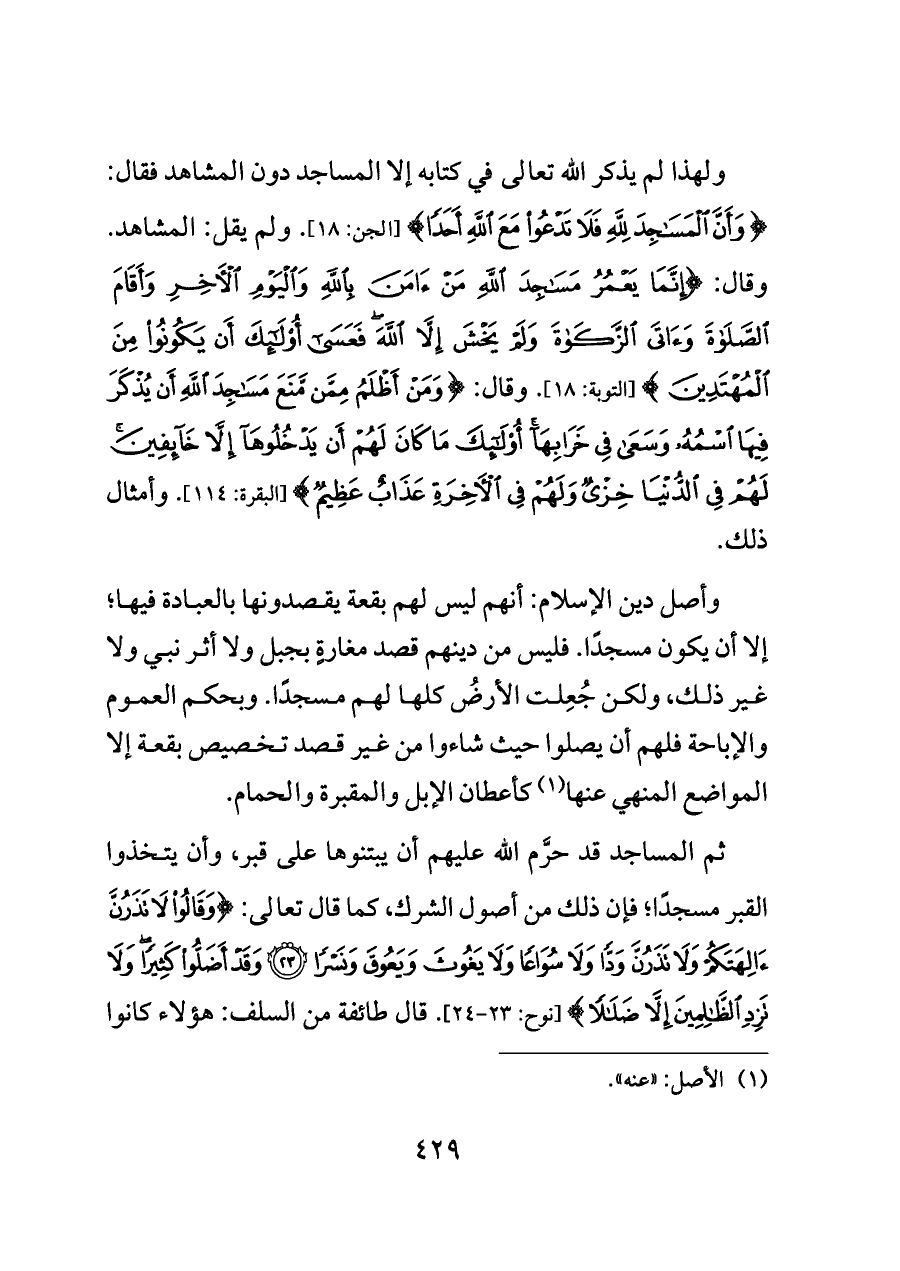 ولهذا لم يذكر الله تعالى في كتابه إلا المساجد دون المشاهد فقال:
﴿وَأَنَّ ٱلْمَسَٰجِدَ لِلَّهِ فَلَا تَدْعُوا۟ مَعَ ٱللَّهِ أَحَدًا﴾ [الجن: ١٨]. ولم يقل: المشاهد.
وقال: ﴿إِنَّمَا يَعْمُرُ مَسَٰجِدَ ٱللَّهِ مَنْ ءَامَنَ بِٱللَّهِ وَٱلْيَوْمِ ٱلْءَاخِرِ وَأَقَامَ
ٱلصَّلَوٰةَ وَءَاتَى ٱلزَّكَوٰةَ وَلَمْ يَخْشَ إِلَّا ٱللَّهَ ۖ فَعَسَىٰٓ أُو۟لَٰٓئِكَ أَن يَكُونُوا۟ مِنَ
ٱلْمُهْتَدِينَ﴾ [التوبة: ١٨]. وقال: ﴿وَمَنْ أَظْلَمُ مِمَّن مَّنَعَ مَسَٰجِدَ ٱللَّهِ أَن يُذْكَرَ
فِيهَا ٱسْمُهُۥ وَسَعَىٰ فِى خَرَابِهَآ ۚ أُو۟لَٰٓئِكَ مَا كَانَ لَهُمْ أَن يَدْخُلُوهَآ إِلَّا خَآئِفِينَ ۚ
لَهُمْ فِى ٱلدُّنْيَا خِزْىٌ وَلَهُمْ فِى ٱلْءَاخِرَةِ عَذَابٌ عَظِيمٌ﴾ [البقرة: ١١٤]. وأمثال
ذلك.
وأصل دين الإسلام: أنهم ليس لهم بقعة يقصدونها بالعبادة فيها؛
إلا أن يكون مسجدًا. فليس من دينهم قصد مغارةٍ بجبل ولا أثر نبي ولا
غير ذلك، ولكن جُعِلت الأرضُ كلها لهم مسجدًا. وبحكم العموم
والإباحة فلهم أن يصلوا حيث شاءوا من غير قصد تخصيص بقعة إلا
المواضع المنهي عنها(١) كأعطان الإبل والمقبرة والحمام.
ثم المساجد قد حرَّم الله عليهم أن يبتنوها على قبر، وأن يتخذوا
القبر مسجدًا؛ فإن ذلك من أصول الشرك، كما قال تعالى: ﴿وَقَالُوا۟ لَا تَذَرُنَّ
ءَالِهَتَكُمْ وَلَا تَذَرُنَّ وَدًّا وَلَا سُوَاعًا وَلَا يَغُوثَ وَيَعُوقَ وَنَسْرًا ﴿٢٣﴾ وَقَدْ أَضَلُّوا۟ كَثِيرًا ۖ وَلَا
تَزِدِ ٱلظَّٰلِمِينَ إِلَّا ضَلَٰلًا﴾ [نوح: ٢٣-٢٤]. قال طائفة من السلف: هؤلاء كانوا
(١) الأصل: «عنه».
٤٢٩